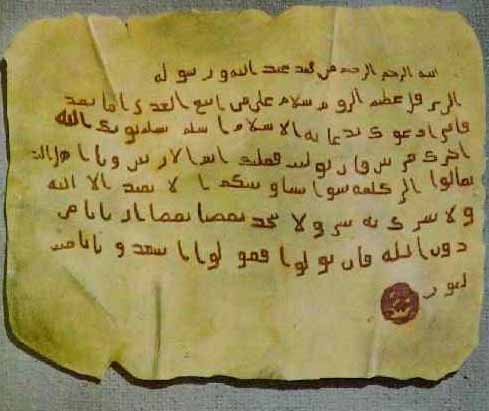 الله الرحمن الرحيم من محمد عبد الله ورسوله
الى هرقل عظيم الروم سلام على من اتبع الهدى اما بعد
فانى ادعوك بدعاية الاسلام اسلم تسلم يوتك الله
اجرك مرتين فان توليت فعليك اثم الاريسيين ويا اهل
تعالوا الى كلمة سوا بيننا وبينكم الا نعبد الا الله
ولا نشرك به شيا ولا يتخذ بعضنا بعضا اربابا من
دون الله فان تولوا فقولوا اشهدوا بانا